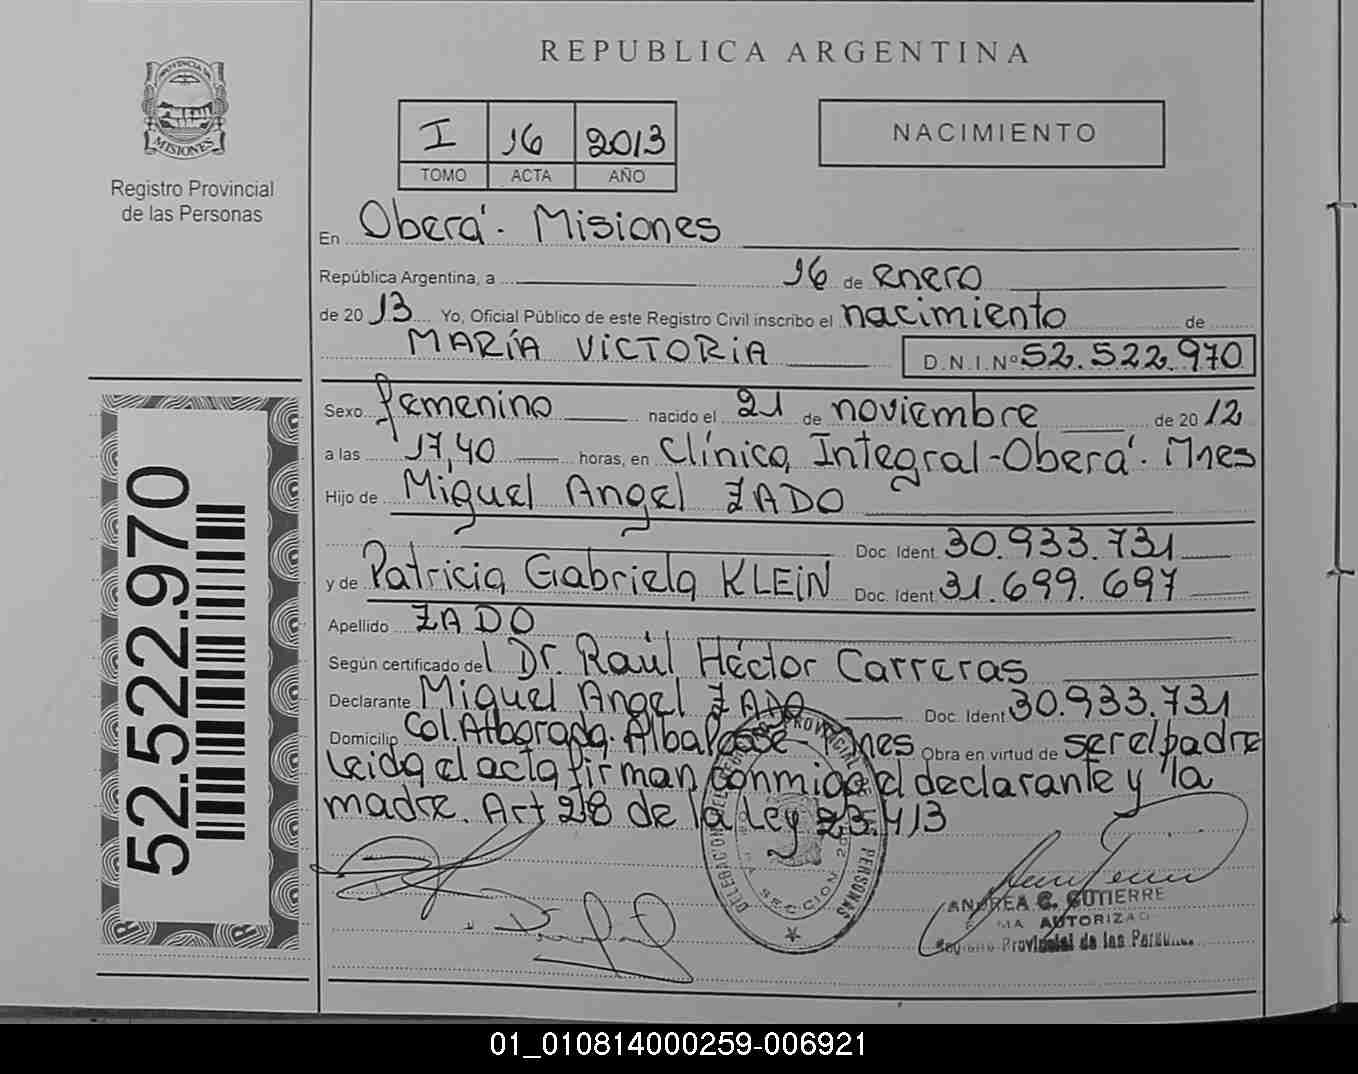 REPUBLICA ARGENTINA
PROVINCIA DE MISIONES
Registro Provincial
de las Personas
I 16 2013
TOMO ACTA AÑO
NACIMIENTO
En Oberá - Misiones
República Argentina, a 16 de enero
de 2013 Yo, Oficial Público de este Registro Civil inscribo el nacimiento de
MARÍA VICTORIA D.N.I.Nº 52.522.970
Sexo femenino nacido el 21 de noviembre de 2012
a las 17,40 horas, en Clínica Integral - Oberá - Mnes
Hijo de Miguel Angel ZADO
Doc. Ident. 30.933.731
y de Patricia Gabriela KLEIN Doc. Ident. 31.699.697
Apellido ZADO
Según certificado del Dr. Raúl Héctor Carreras
Declarante Miguel Angel ZADO Doc. Ident. 30.933.731
Domicilio Col. Alborada. Mnes Obra en virtud de ser el padre
Leida el acta firman conmigo el declarante y la
madre. Art 28 de la Ley 23.413
52.522.970
ANDREA C. GUTIERRE
AUTORIZAD
Registro Provincial de las Personas
01_010814000259-006921